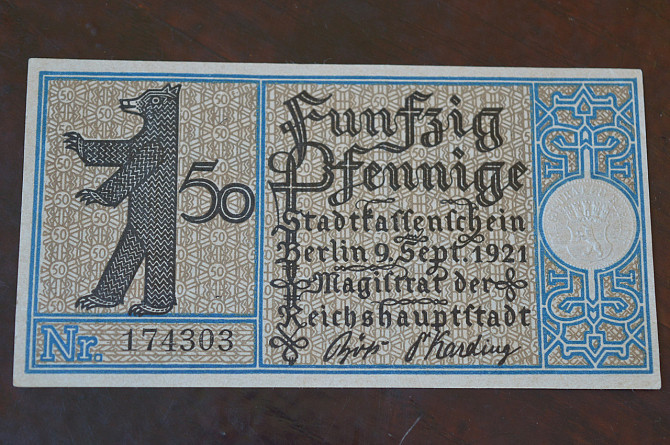 50
Nr. 174303
Funfzig
Pfennige
Stadtkassenschein
Berlin 9. Sept. 1921
Magistrat der
Reichshauptstadt